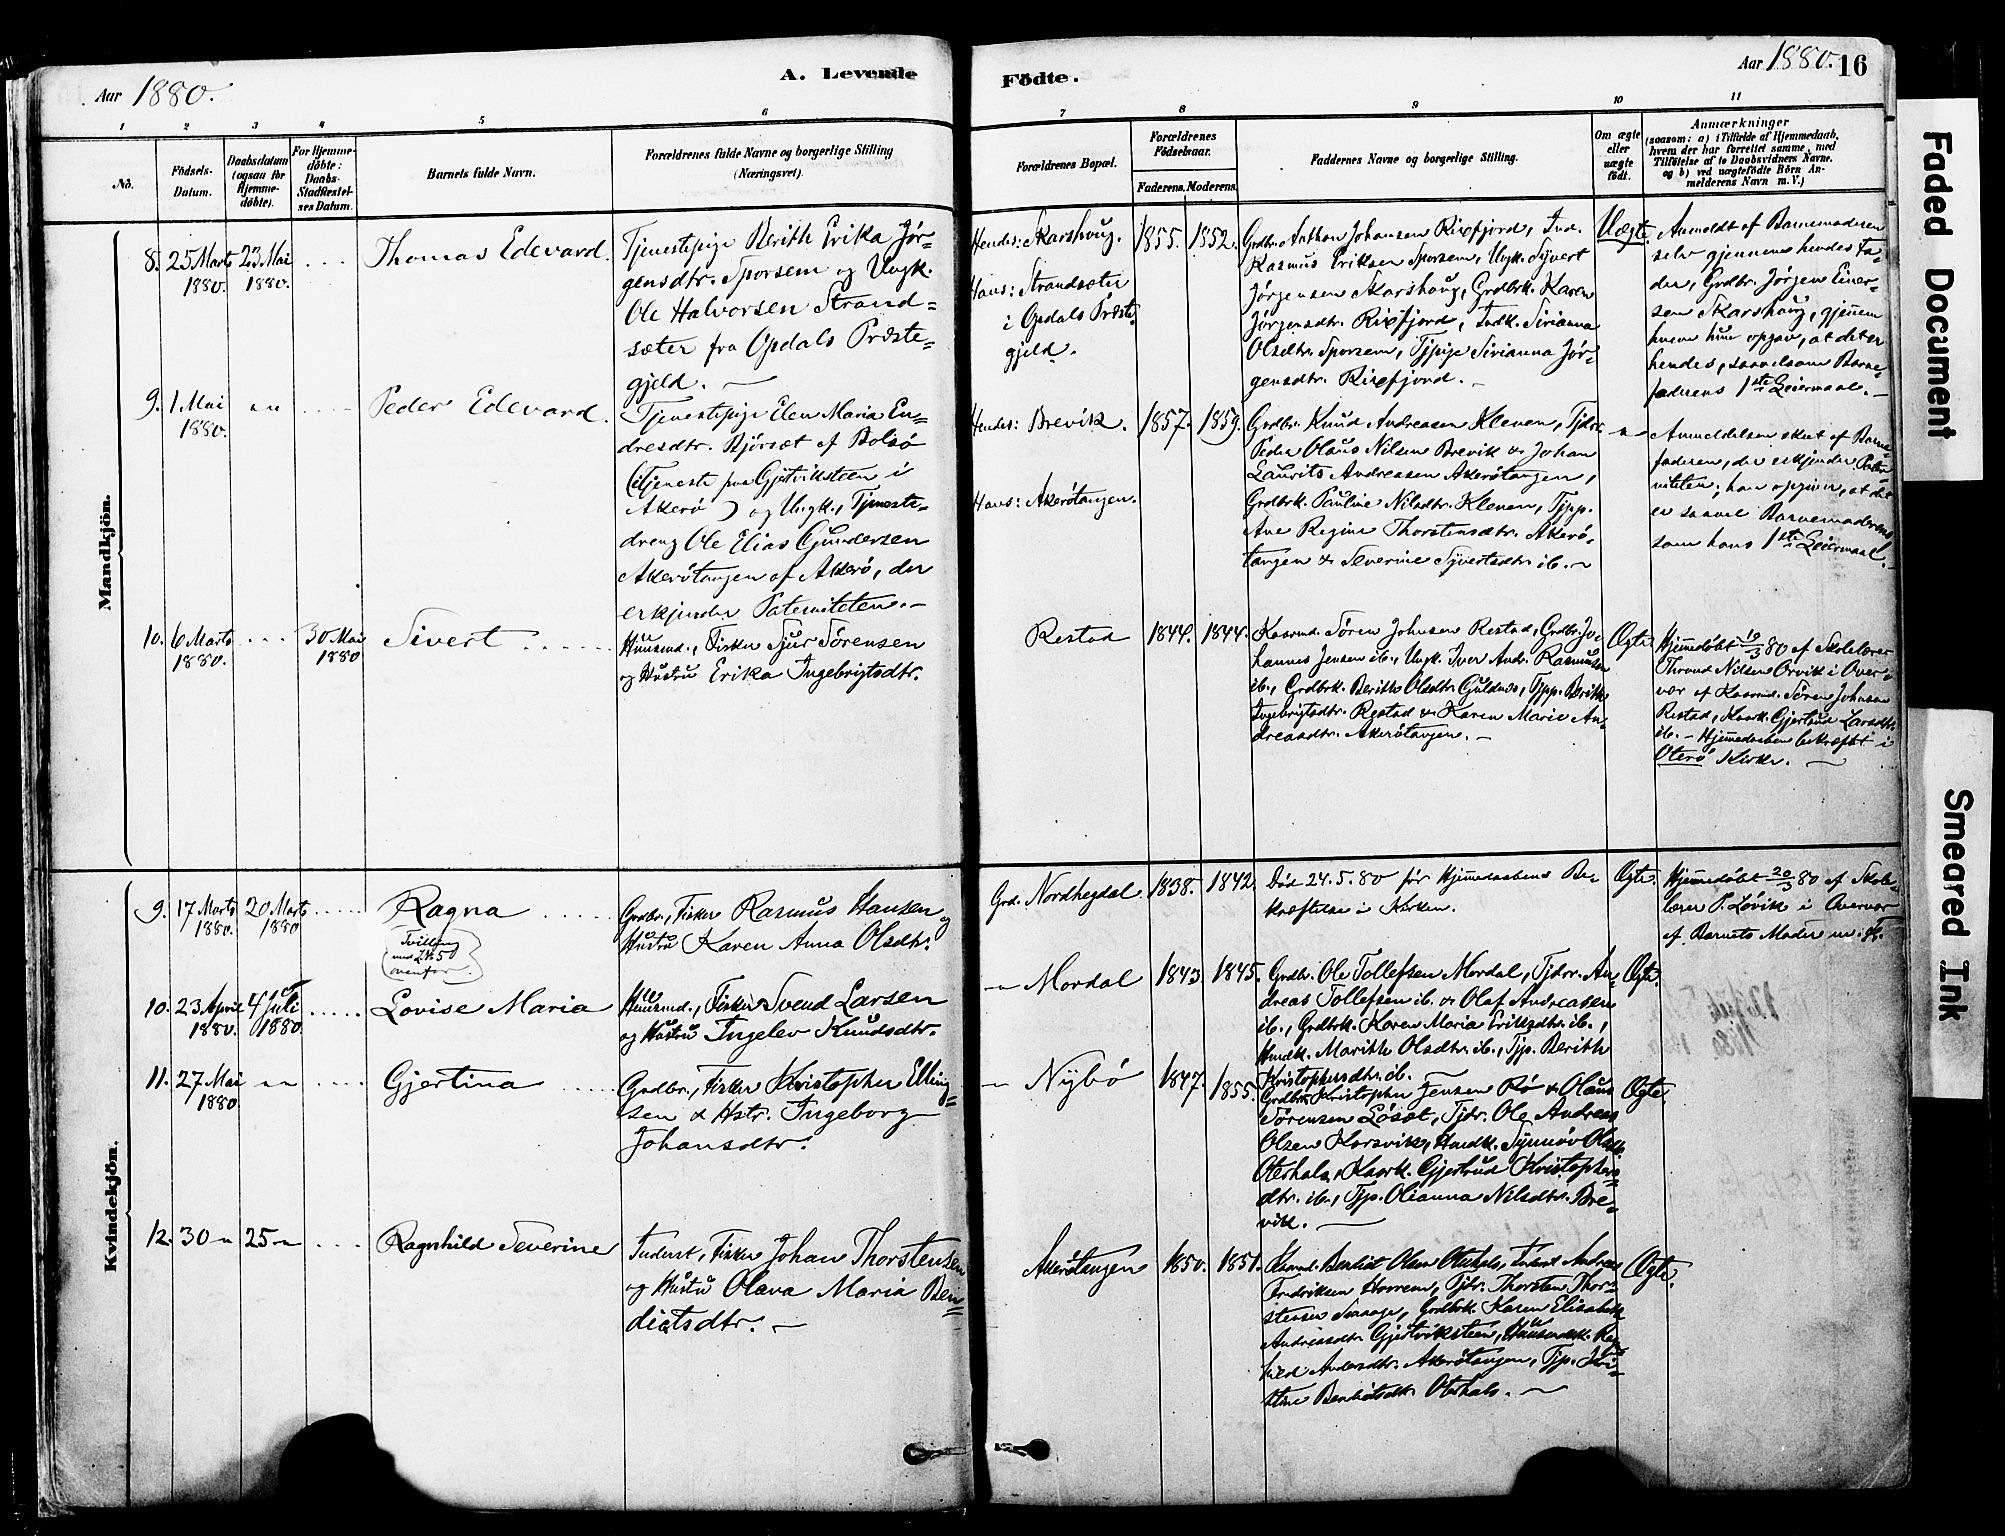 Aar 1880.
A. Levende
Födte.
Aar 1880. 16
1 2 3 4 5 6 7 8 9 10 11
No.
Födsels-
Datum.
Daabsdatum
(ogsaa for
Hjemme-
döbte).
For Hjemme-
döbte:
Daabs-
Stadfæstel-
ses Datum.
Barnets fulde Navn.
Forældrenes fulde Navne og borgerlige Stilling
(Næringsvei).
Forældrenes Bopæl.
Forældrenes
Födselsaar.
Faderens. Moderens.
Faddernes Navne og borgerlige Stilling.
Om ægte
eller
uægte
födt.
Anmærkninger
(saasom: a) i Tilfælde af Hjemmedaab,
hvem der har forrettet samme, med
Tilföielse af to Daabsvidners Navne.
og b) ved uægtefödte Börn An-
melderens Navn m. V.)
Mandkjön.
8. 25 Marts
1880.
23 Mai
1880.
Thomas Edevard.
Tjenestepige Berith Erika Jør-
gensdtr. Sporsem og Ungk.
Ole Halvorsen Strand-
sæter fra Opdals Præste-
gjeld. —
Hendes: Skarshoug.
Hans: Strandsæter
i Opdals Præste-
gjeld.
1855. 1852.
Grdbr. Anthon Johansen Rixfjord, Ind.
Rasmus Eriksen Sporsem, Ungk. Syvert
Jørgensen Skarshoug, Grdbrk. Karen
Jørgensdtr. Rixfjord, Indk. Sirianna
Olsdtr. Sporsem, Tjpige Sirianna Jør-
gensdtr. Rixfjord. —
Uægte
Anmeldt af Barnemoderen
selv gjennem hendes Fa-
der, Grdbr. Jørgen Einer-
sen Skarshoug, gjennem
hvem hun opgav, at det er
hendes, saavelsom Barne-
faderens 1ste Leiermaal. —
9. 1 Mai
1880.
Peder Edevard.
Tjenestepige Elen Maria En-
dresdtr. Bjørsæt af Bolsø
(itjeneste paa Gjetviksteen i
Akerø) og Ungk., Tjeneste-
dreng Ole Elias Gundersen
Akerøtangen af Akerø, der
erkjender Paterniteten. —
Hendes: Brevik.
Hans: Akerøtangen.
1857. 1859.
Grdbr. Knud Andreasen Kleven, Tjdr.
Peder Olaus Nilsen Brevik & Johan
Laurits Andreasen Akerøtangen,
Grdbrk. Pauline Nilsdtr. Kleven, Tjpp.
Ane Regine Thorstensdtr. Akerø-
tangen & Severine Syvertsdtr. ib. —
Anmeldelsen skeet af Barne-
faderen, der erkjender Pater-
niteten; han opgiver, at det
er saavel Barnemoderens
som hans 1ste Leiermaal. —
10. 6 Marts
1880.
30 Mai
1880
Sivert
Huusmd., Fisker Sjur Sørensen
og Hustru Erika Ingebrigtsdtr.
Restad
1844. 1844.
Kaarmd. Søren Johnsen Restad, Grdbr. Jo-
hannes Jensen ib., Ungk. Iver Andr. Rasmussen
ib., Grdbrk. Berith Olsdtr. Guldnes, Tjpp. Berith
Ingebrigtsdtr. Restad & Karen Marie An-
dreasdtr. Akerøtangen. —
Ægte
Hjemmedøbt 10/3 80 af Skolelærer
Thrond Nilsen Orvik i Over-
vær af Kaarmd. Søren Johnsen
Restad, Kaark. Gjertrud Larsdtr.
ib. — Hjemmedaaben bekræftet i
Oterø Kirke. —
Kvindekjön.
9. 17 Marts
1880.
20 Marts
1880
Ragna
(Tvilling
med No 50
ovenfor.)
Grdbr., Fisker Rasmus Hansen og
Hustru Karen Anna Olsdtr.
Grd. Nordhegdal
1838. 1842
Død 24.5.80 før Hjemmedaabens Be-
kræftelse i Kirken.
Ægte.
Hjemmedøbt 20/3 80 af Skole-
lærer P. Løvik i Overvær
af Barnets Moder m. fl.
10. 23 April
1880.
4 Juli
1880.
Lovise Maria
Huusmd., Fisker Svend Larsen
og Hustru Ingelev Knudsdtr.
Mordal
1843 1845.
Grdbr. Ole Tollefsen Mordal, Tjdr. An-
dreas Tollefsen ib. & Olaf Andreassen
ib., Grdbrk. Karen Maria Eriksdtr. ib.,
Husmk. Marith Olsdtr. ib., Tjp. Berith
Kristophersdtr. ib.
Ægte.
11. 27 Mai
1880
Gjertina
Grdbr., Fisker Kristopher Elling-
sen & Hstr. Ingeborg
Johansdtr.
Nybø
1847. 1855.
Grdbr. Kristopher Jensen Rø & Olaus
Sørensen Løsæt, Tjdr. Ole Andreas
Olsen Korsvik, Husmdk. Synnøv Olsdtr.
Oterhals, Kaark. Gjertrud Kristophers-
dtr. ib., Tjp. Olianna Nilsdtr. Bre-
vik. —
Ægte
12. 30 25
Ragnhild Severine
Inderst, Fisker Johan Thorstensen
og Hustru Olava Maria Ben-
diktsdtr. —
Akerøtangen
1850. 1851.
Kaarmd. Bendikt Olsen Oterhals, Inderst Andreas
Fredriksen Horrem, Tjdr. Thorsten Thor-
stensen, Grdbrk. Karen Elisabeth
Andreasdtr. Gjetviksteen, Huusmdk. Ragn-
hild Andersdtr. Akerøtangen, Tjp. Kri-
stine Bendiktsdtr. Oterhals. —
Ægte.
Faded Document
Smeared Ink